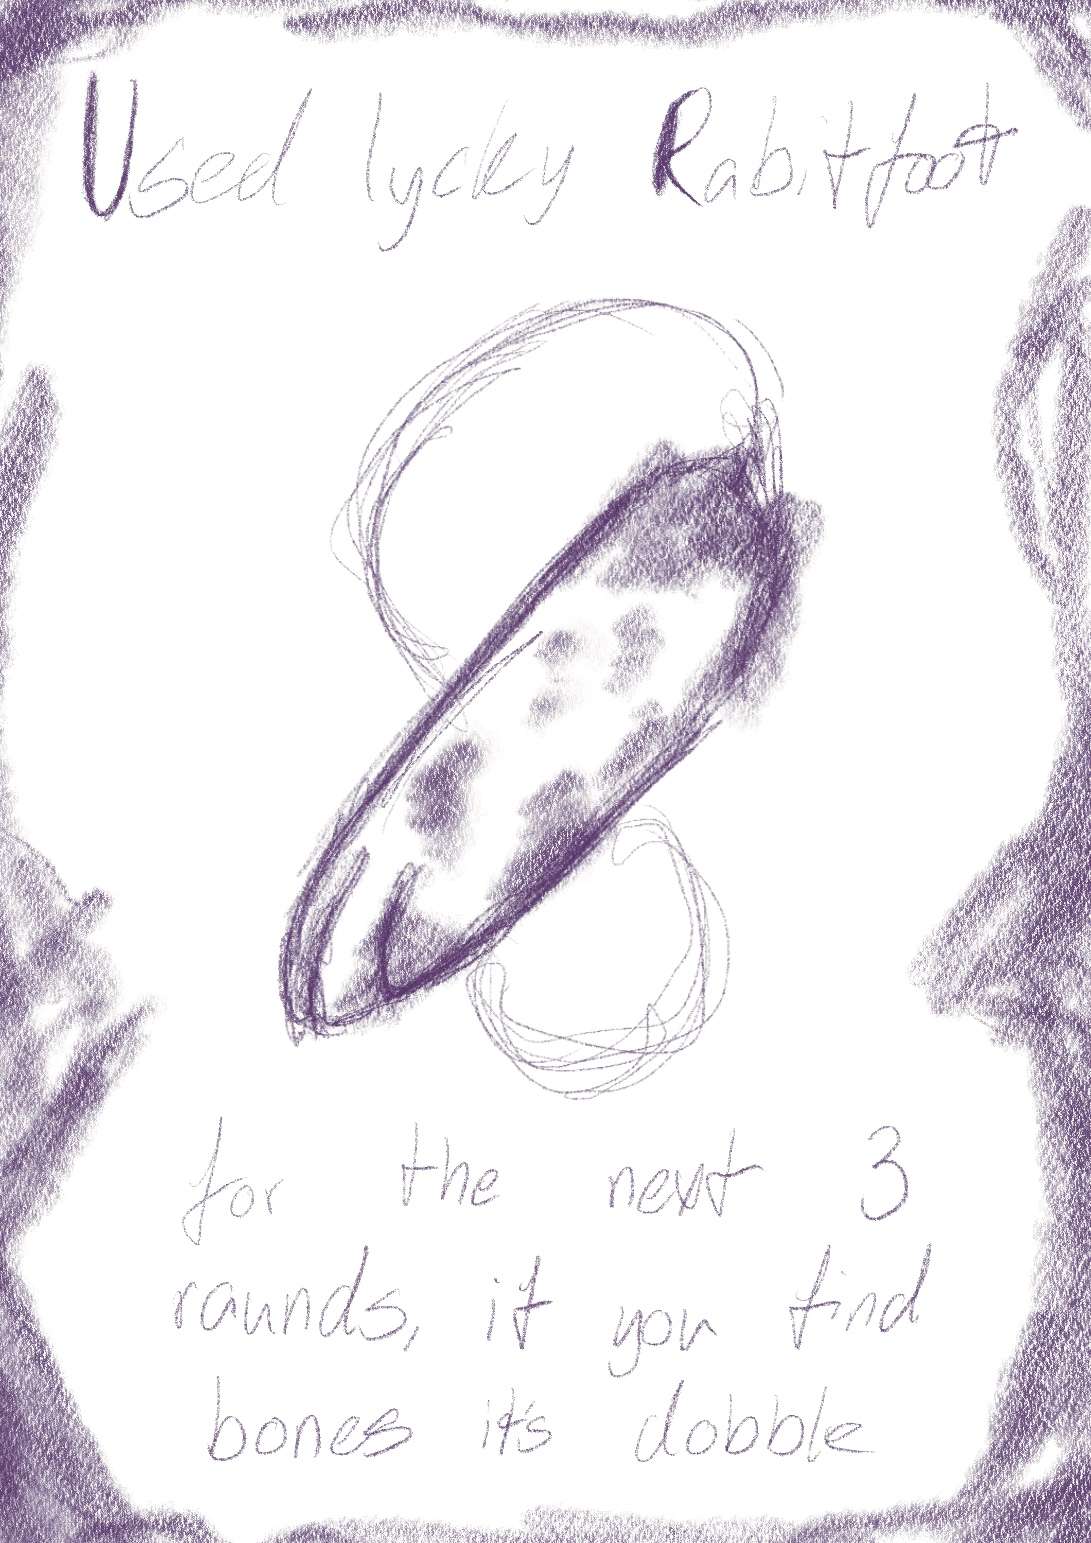 Used lycky Rabitfoot
for the next 3
raunds, if you find
bones it's dobble